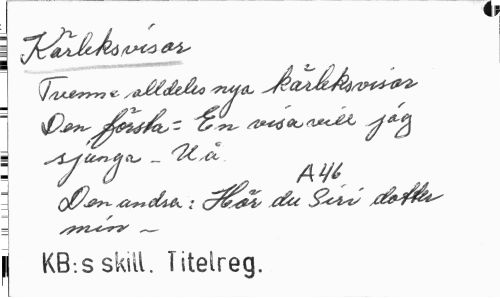 Kärleksvisor
Tvenne alldeles nya kärleksvisor
Den första = En visa vill jag
sjunga - U å.
A46
Den andra: Hör du Siri dotter
min -
KB:s skill. Titelreg.